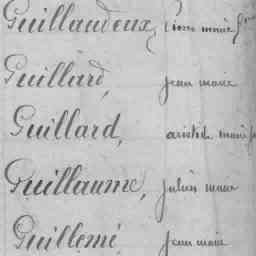 Guillaudeux, Pierre marie
Guillard, jean marie
Guillard, aristide marie
Guillaume, julien marie
Guillemé, jean marie